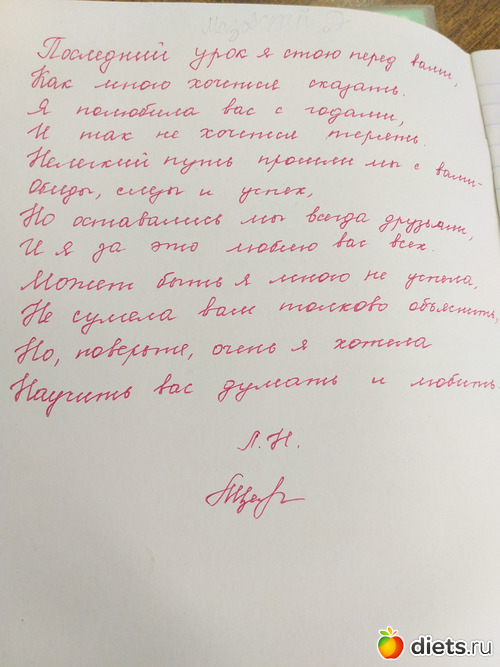 Последний урок я стою перед вами,
Как много хочется сказать.
Я полюбила вас с годами,
И так не хочется терять.
Нелегкий путь прошли мы с вами-
Обиды, слезы и успех,
Но оставались мы всегда друзьями,
И я за это люблю вас всех.
Может быть я много не успела,
Не сумела вам толково объяснить,
Но, поверьте, очень я хотела
Научить вас думать и любить
Л.Н.
diets.ru